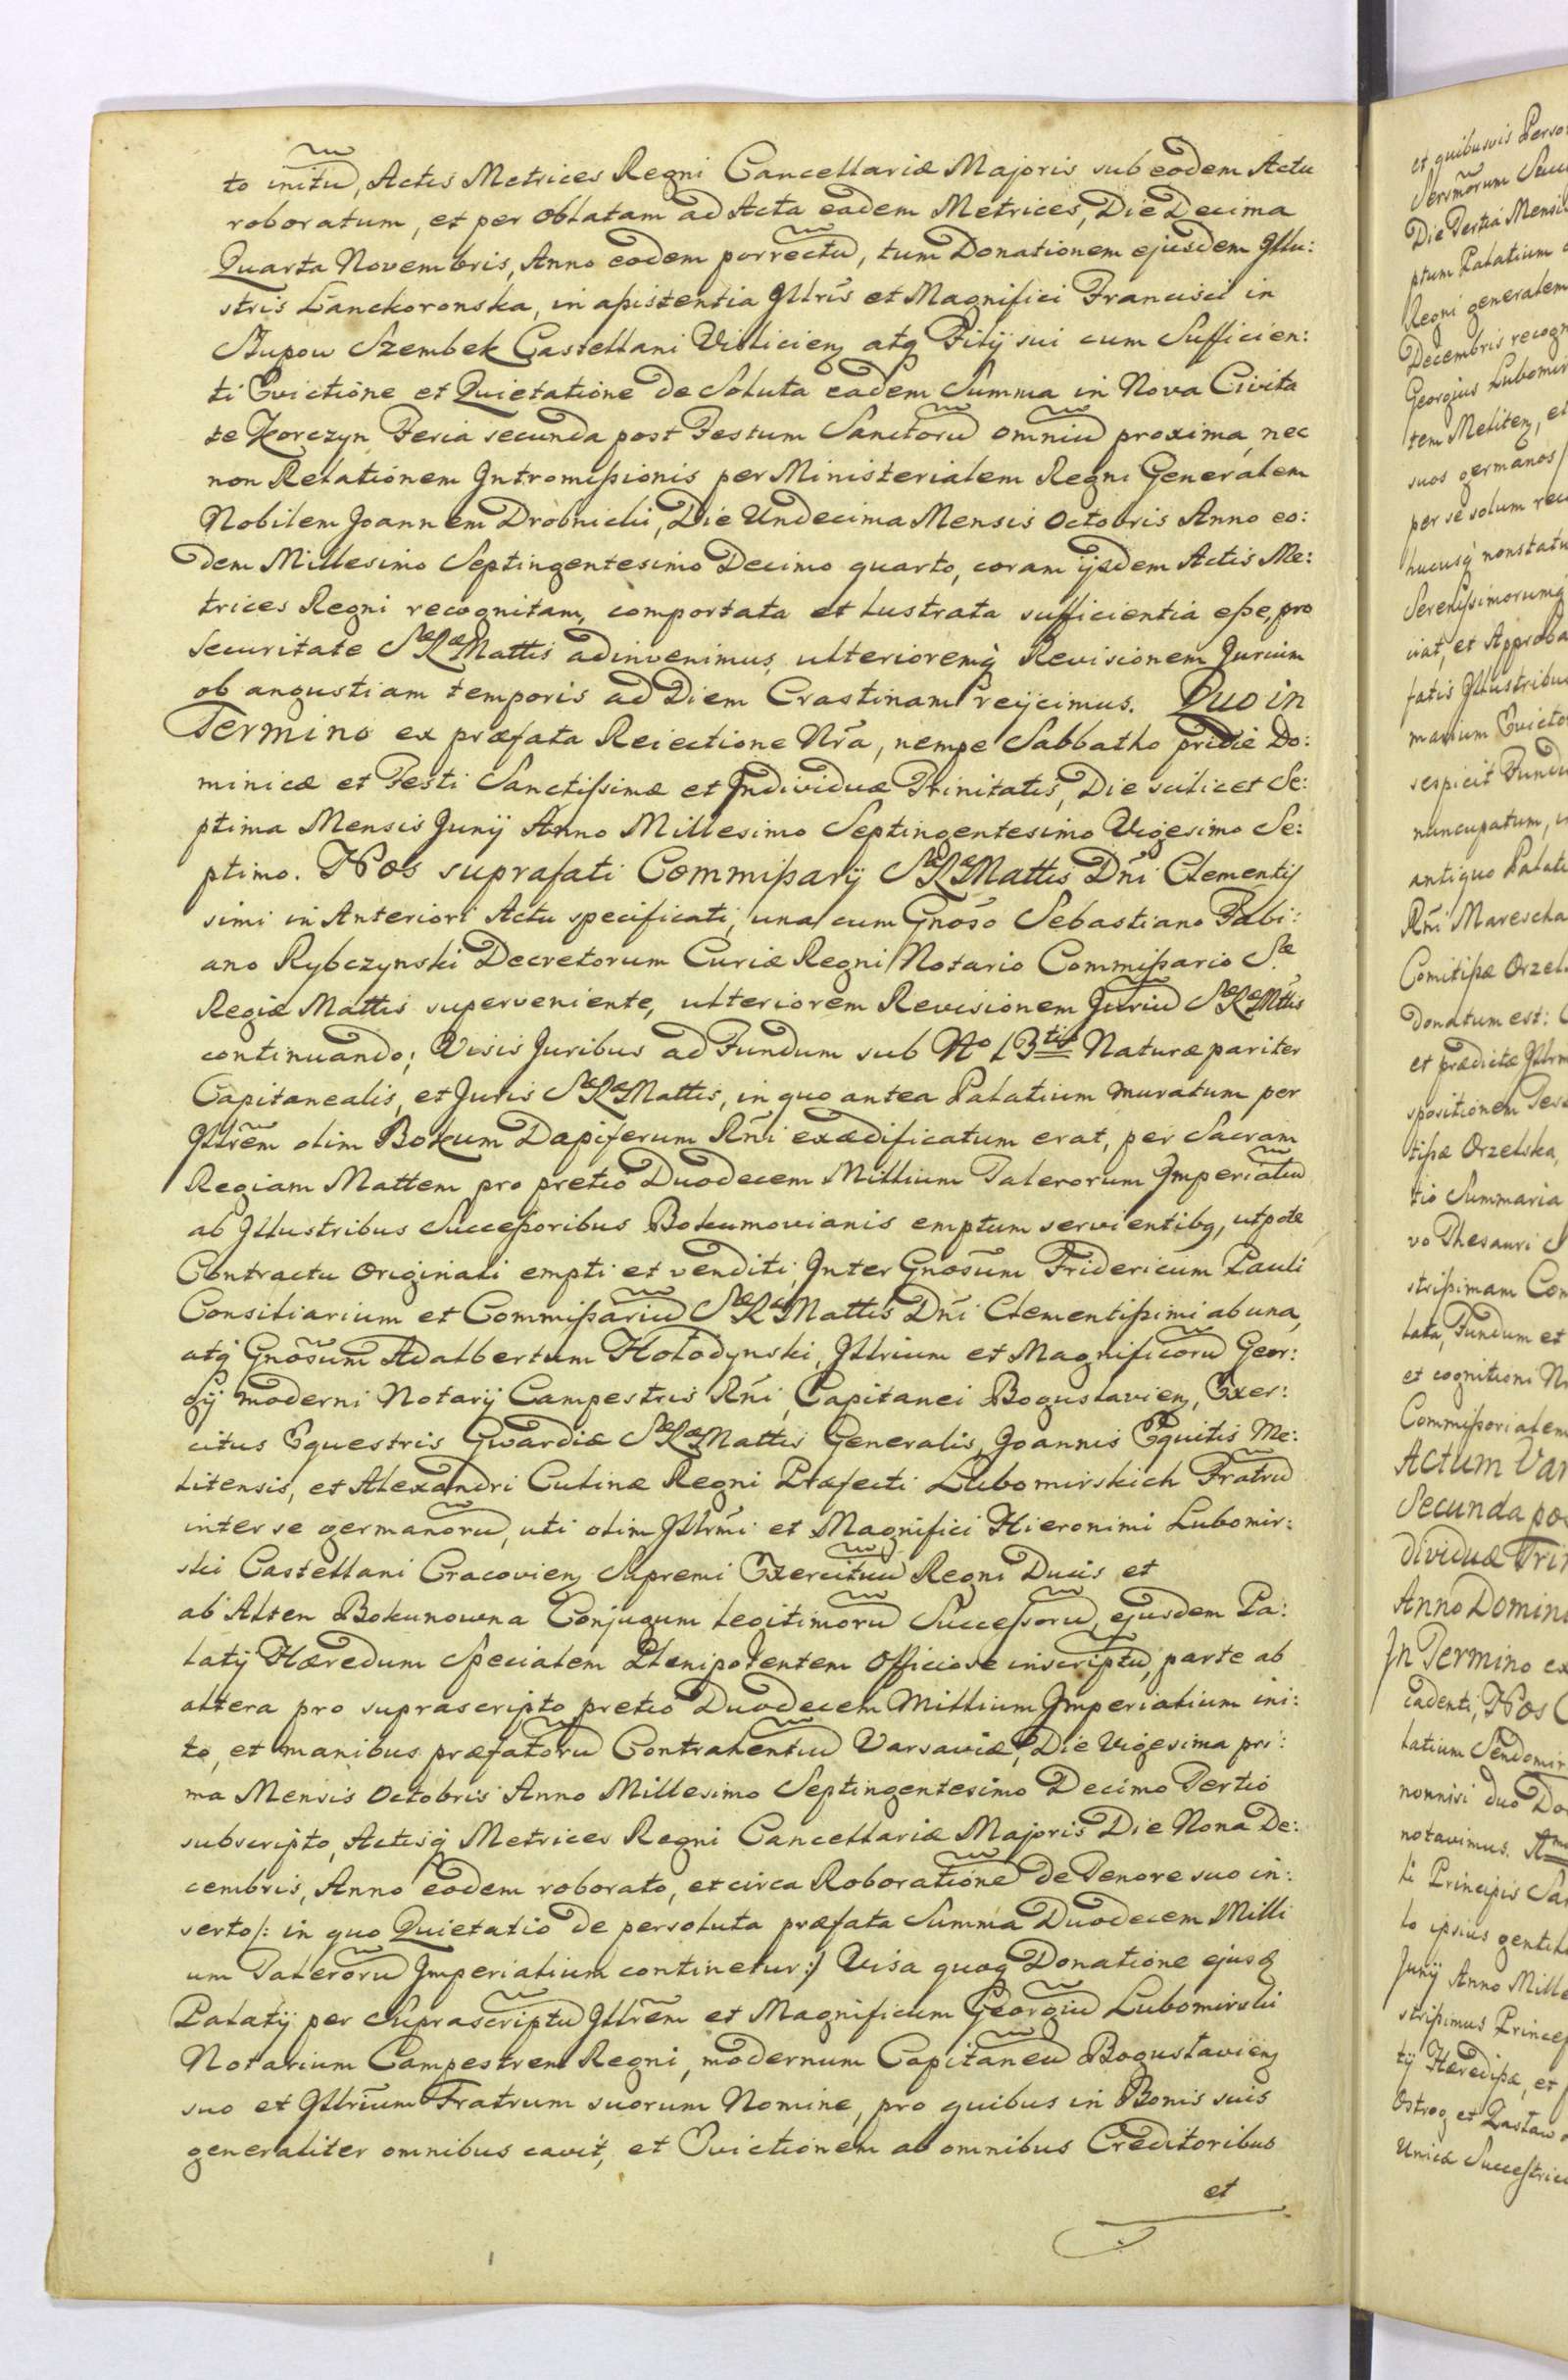 to initũ, Actis Metrices Regni Cancellariæ Majoris sub eodem Actu
roboratum, et per Oblatam ad Acta eadem Metrices, Die Decima
Quarta Novembris, Anno eodem porrectũ, tum Donationem ejusdem Jllu:
stris Lanckoronska, in assistentia Jllris̃ et Magnifici Francisci in
Słupow Szembek Castellani Vislicieņ atq Filij sui cum Sufficien:
ti Evictione et Quietatione de Soluta eadem Summa in Nova Civita
te Korczyn Feria secunda post Festum Sanctorũ omniũ proxima, nec
non Relationem Jntromissionis per Ministerialem Regni Generalem
Nobilem Joannem Drobnicki, Die Undecima Mensis Octobris Anno eo:
dem Millesimo Septingentesimo Decimo quarto, coram ijsdem Actis Me:
trices Regni recognitam, comportata et lustrata sufficientia esse, pro
securitate Sæ Ræ Mattis adinvenimus, ulterioremq̃ Revisionem Jurium
ob angustiam temporis ad Diem Crastinam reijcimus. Quo in
Termino ex præfata Reiectione Nr̃a, nempe Sabbatho pridie Do:
minicæ et Festi Sanctissimæ et Jndividuæ Trinitatis, Die scilicet Se:
ptima Mensis Junij Anno Millesimo Septingentesimo Vigesimo Se:
ptimo. Nos suprafati Commissarij Sæ Ræ Mattis Dn̄i Clementis
simi in Anteriori Actu specificati, una cum Gnõso Sebastiano Fabi:
ano Rybczynski Decretorum Curiæ Regni Notario Commissario Sæ
Regiæ Mattis superveniente, ulteriorem Revisionem Juriũ Sæ Ræ Mttis
continuando; Visis Juribus ad Fundum sub No 13tio Naturæ pariter
Capitanealis, et Juris Sæ Ræ Mattis, in quo antea Palatium muratum per
Jllrẽm olim Bokum Dapiferum Rñi exædificatum erat, per Sacram
Regiam Mattem pro pretio Duodecem Millium Talerorum Jmperialiũ
ab Jllustribus Successoribus Bokumovianis emptum servientibq, utpote
Contractu Originali empti et venditi, Jnter Gnõsum Fridericum Pauli
Consiliarium et Commissariũ Sæ Ræ Mattis Dñi Clementissimi ab una,
atq̃ Gnõsum Adalbertum Hołodynski, Jllrium et Magnificorũ Geor:
gij moderni Notarij Campestris Rñi, Capitanei Boguslavieņ, Exer:
citus Equestris Gwardiæ Sæ Ræ Mattis Generalis, Joannis Equitis Me:
litensis, et Alexandri Culinæ Regni Præfecti Lubomirskich Fratrũ
inter se germanorũ, uti olim Jllrm̃i et Magnifici Hieronimi Lubomir:
ski Castellani Cracovieņ Supremi Exercituũ Regni Ducis et
ab Alten Bokunowna Conjugum legitimorũ Successorũ, ejusdem Pa:
latij Hæredum Specialem Plenipotentem Officiose inscriptũ, parte ab
altera pro suprascripto pretio Duodecem Millium Jmperialium ini:
to, et manibus præfatorũ Contrahentiũ Varsaviæ, Die Vigesima pri:
ma Mensis Octobris Anno Millesimo Septingentesimo Decimo Tertio
subscripto, Actisq̃ Metrices Regni Cancellariæ Majoris Die Nona De:
cembris, Anno eodem roborato, et circa Roboratione de Tenore suo in:
serto /: in quo Quietatio de persoluta præfata Summa Duodecem Milli
um Talerorũ Jmperialium continetur :/ Visa quoq Donatione ejusđ
Palatij per Suprascriptũ Jllrẽm et Magnificum Georgiũ Lubomirski
Notarium Campestrem Regni, modernum Capitaneũ Boguslavieņ
suo et Jllrium Fratrum suorum Nomine, pro quibus in Bonis suis
generaliter omnibus cavit, et Evictionem ab omnibus Creditoribus
et
et quibusvis Perso
Sersmorum
Die Tertia Mensis
ptum Palatium
Regni generalem
Decembris recogn
Georgius Lubomir
tem Meliteņ, et
suos germanos
per se solum
hucusq̃ non
Serenissimorumq̃
viat, et Approba
fatis Jllustribus
marium Evicto
respicit Fundu
nuncupatum,
antiquo Palati
Rñi Marescha
Comitissæ Orzel
donatum est:
et prædictæ Jllrm
spositionem
tissæ Orzelska,
tio Summaria
vo Thesauri
strissimam Com
lata, Fundum et
et cognitioni
Commissorialem
Actum Var
Secunda pos
dividuæ Tri
Anno Domini
Jn Termino ex
cadenti, Nos
latium Sendomir
nonnisi duo Do
notavimus.
li Principis
lo ipsius gentil
Junij Anno Mille
strissimus Princep
tij Hæredissa, et
Ostrog et Zasław
Unica Successtrice